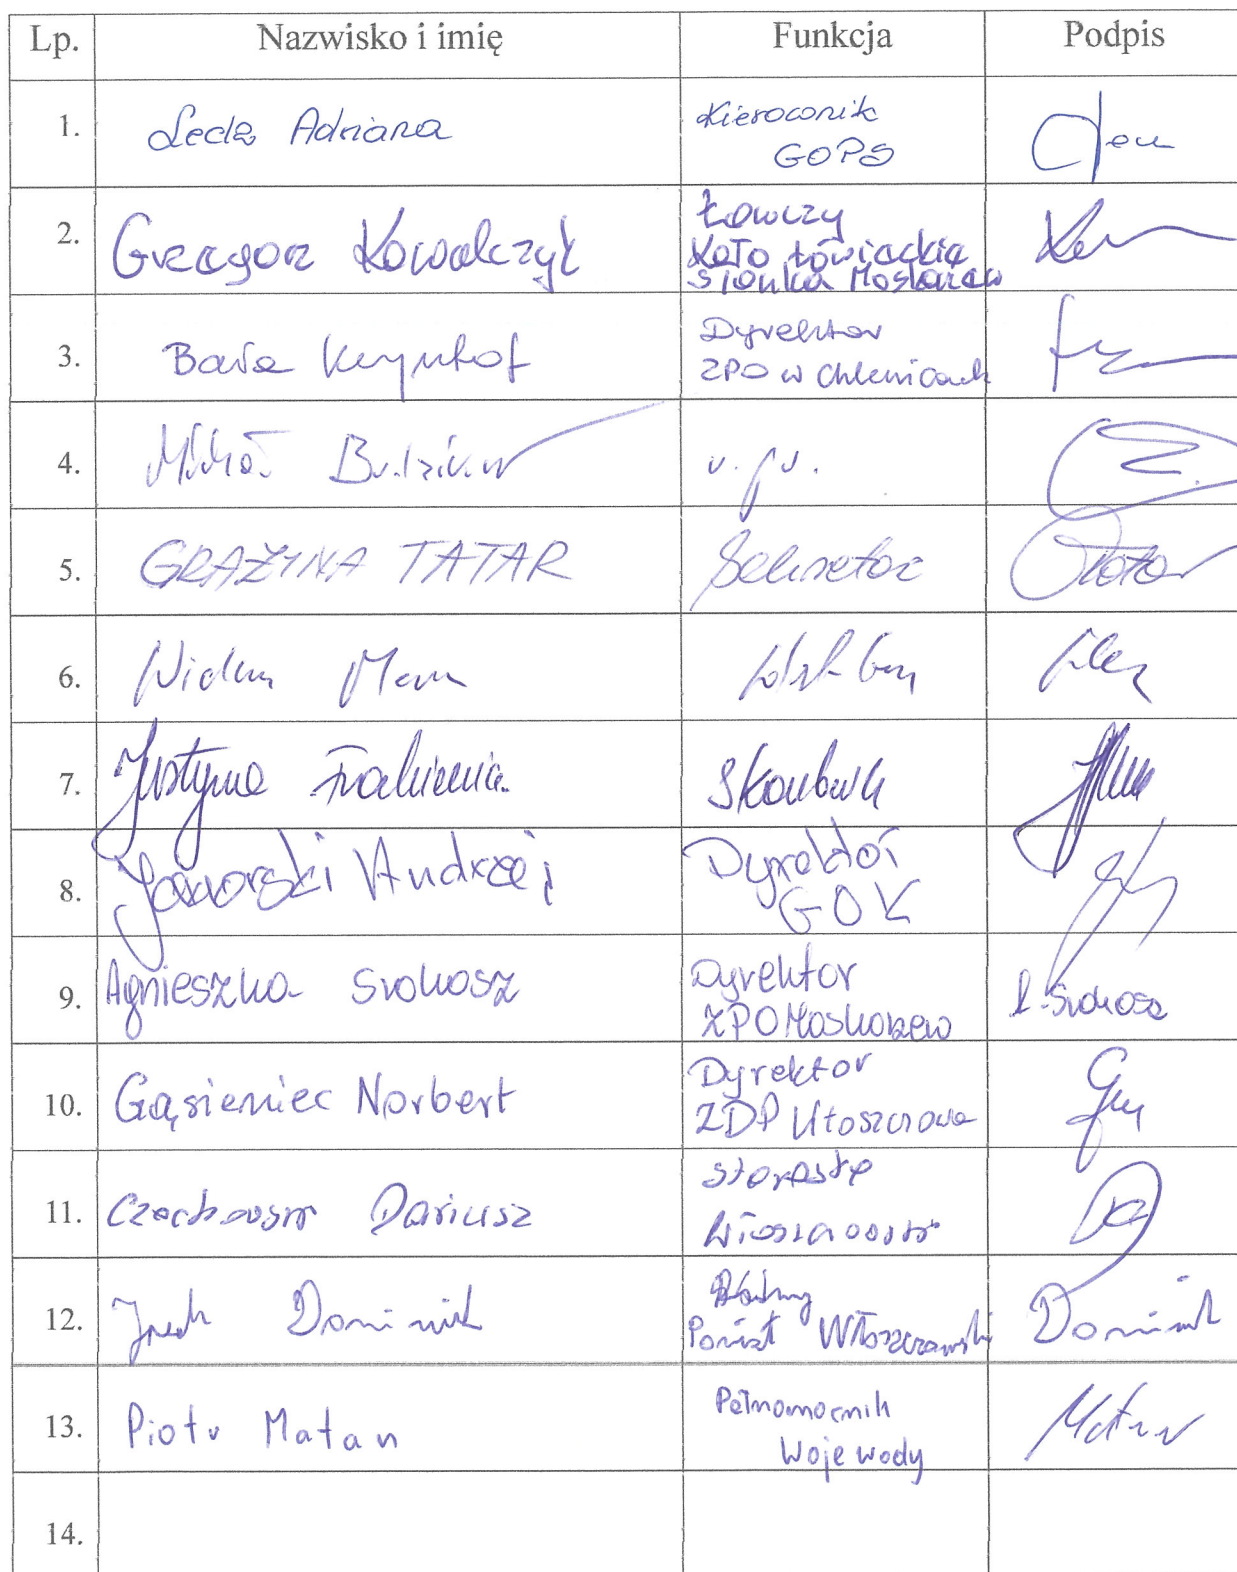 Lp. Nazwisko i imię Funkcja Podpis
1. Leda Adriana Kierownik
GOPS
2. Grzegorz Kowalczyk Łowczy
Koło Łowieckie
Słonka Moskorzew
3. Bała Krzysztof Dyrektor
ZPO w Chlewicach
4.
5. GRAŻYNA TATAR Sekretarz Tatar
6.
7. Justyna Skarbnik
8. Jaworski Andrzej Dyrektor
GOK
9. Agnieszka Srokosz Dyrektor
ZPO Moskorzew Srokosz
10. Gąsieniec Norbert Dyrektor
ZDP Włoszczowa
11. Czechowski Dariusz Starosta
Włoszczowski
12. Dominik Radny
Powiat Włoszczowski Dominik
13. Piotr Matan Pełnomocnik
Wojewody Matan
14.